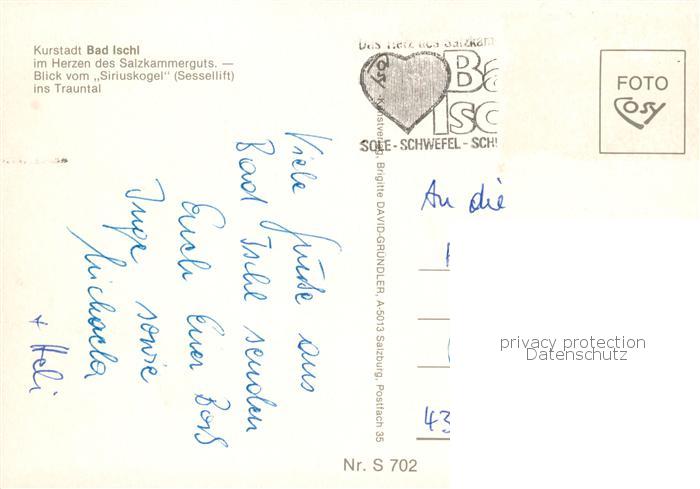 Kurstadt Bad Ischl
im Herzen des Salzkammerguts. —
Blick vom „Siriuskogel" (Sessellift)
ins Trauntal
Das Herz des Salzkam
Cosy
Ba
Isc
SOLE - SCHWEFEL - SCH
FOTO
Cosy
Kunstverlag, Brigitte DAVID-GRÜNDLER, A-5013 Salzburg, Postfach 35
Viele Grüße aus
Bad Ischl senden
Euch Euer Boß
Inge sowie
Michaela
+ Heli
An die
43
privacy protection
Datenschutz
Nr. S 702